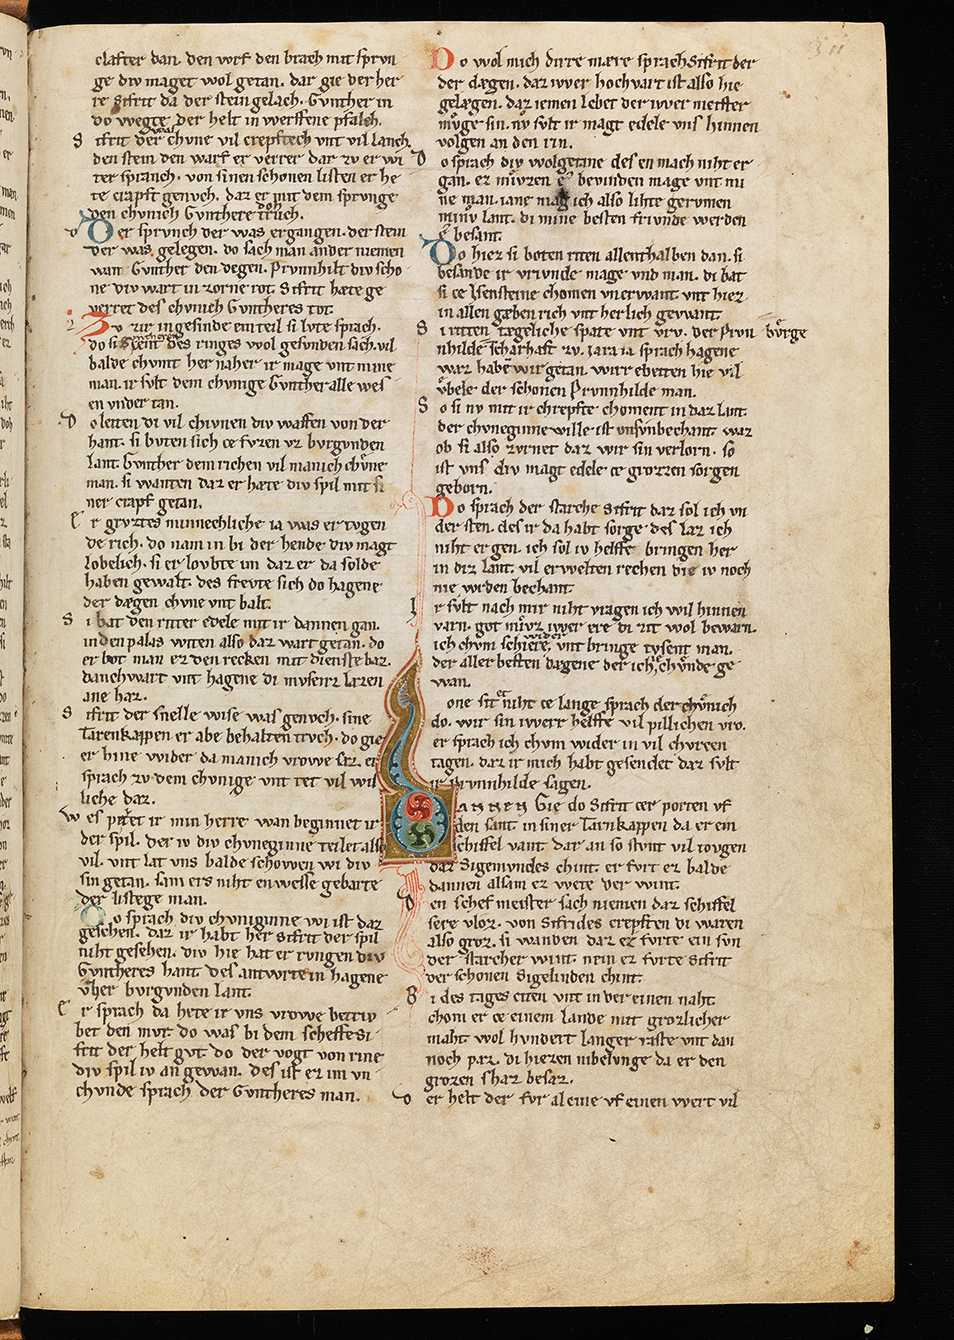 clafter dan. den wrf den brach mit sprvn
ge div maget wol getan. dar gie der her
re Sifrit da der stein gelach. Gvnther in
do wegte der helt in werffene pflach.
S ifrit der was chvne vil creftech vnt vil lanch.
den stein den warf er verrer dar zv er wi
ter spranch. von sinen schonen listen er he
te chrapft genvch. daz er mit dem sprvnge
den chvnich Gvnthere doh trůch.
Der sprvnch der was ergangen. der stein
der was gelegen. do sach man ander niemen
wan Gvnther den degen. Prvnnhilt div scho
ne div wart in zorne rot. Sifrit hæte ge
verret des chvnich Gvntheres tot.
Zv zir ingesinde ein teil si lvte sprach.
do si ce ent des ringes wol gesvnden sach. vil
balde chvmt her naher ir mage vnt mine
man. ir svlt dem chvnige Gvnther alle wes
en vnder tan.
D o leiten di vil chvnen div waffen von der
hant. si bvten sich ce fvzen vz bvrgvnden
lant. Gvnther dem richen vil manich chůne
man. si wanten daz er hæte div spil mit si
ner crapf getan.
E r grvztes minnechliche ia was er tvgen
de rich. do nam in bi der hende div magt
lobelich. si er lovbte im daz er da solde
haben gewalt. des frevte sich do hagene
der dægen chvne vnt balt.
S i bat den ritter edele mit ir dannen gan.
in den palas witen also daz wart getan. do
er bot man ez den recken mit dienste baz.
danchwart vnt hagene di mvsenz lazen
ane haz.
S ifrit der snelle wise was genvch. sine
Tarenkappen er abe behalten trvch. do gie
er hine wider da manich vrowe saz. er
sprach zv dem chvnige vnt tet vil wis
liche daz.
W es pitet ir min herre wan beginnet ir
der spil. der iv div chvneginne teilet also
vil. vnt lat vns balde schowen wi div
sin getan. sam ers niht enwesse gebarte
der listege man.
Do sprach div chvniginne wi ist daz
gesehen. daz ir habt her Sifrit der spil
niht gesehen. div hie hat er rvngen div
Gvntheres hant des antwrte in hagene
vher bvrgvnden lant.
E r sprach da hete ir vns vrowe betrv
bet den mvt do was bi dem scheffe Si
frit der helt gvt. do der vogt von rine
div spil iv an gewan. des ist er im vn
chvnde sprach der Gvntheres man.
Do wol mich dirre mære sprach Sifrit der
der dægen. daz iwer hochvart ist also hie
gelægen. daz iemen lebet der iwer meister
mvge sin. nv svlt ir magt edele vns hinnen
volgen an den rin.
D o sprach div wolgetane des en mach niht er
gan. ez mvzen e bevinden mage vnt mi
ne man. iane mag ich also lihte gervmen
minv lant. di mine besten frivnde werden
e besant.
Do hiez si boten riten allenthalben dan. si
besande ir vrivnde mage vnd man. di bat
si ce Isensteine chomen vnerwant. vnt hiez
in allen gæben rich vnt herlich gewant.
S i riten tægeliche spate vnt vrv. der Prvn bůrge
nhilde scharhaft zv. iara ia sprach hagene
waz habe wir getan. wir erbeiten hie vil
vbele der schonen Prvnnhilde man.
S o si nv mit ir chrepfte choment in daz lant.
der chvneginne wille ist vnsvnbechant. waz
ob si also zvrnet daz wir sin verlorn. so
ist vns div magt edele ce grozzen sorgen
geborn.
Do sprach der starche Sifrit daz sol ich vn
der sten. des ir da habt sorge des laz ich
niht er gen. ich sol iv helffe bringen her
in diz lant. vil erwelten rechen die iv noch
nie wrden bechant.
I r svlt nach mir niht vragen ich wil hinnen
varn. got mvz iwer ere di zit wol bewarn.
ich chvm schiere wider vnt bringe tvsent man.
der aller besten dægene der ich chvnde ge
wan.
one sit et niht ce lange sprach der chvnich
do. wir sin iwerr helffe vil pillichen vro.
er sprach ich chvm wider in vil chvrcen
tagen. daz ir mich habt gesendet daz svlt
ir prvnnhilde sagen.
DANNEN Gie do Sifrit cer porten vf
den sant in siner Tarnkappen da er ein
schiffel vant. dar an so stvnt vil tovgen
daz Sigemvndes chint. er fvrt ez balde
dannen alsam ez wete der wint.
D en schefmeister sach niemen daz schiffel
sere vloz. von Sifrides crepften di waren
also groz. si wanden daz ez fvrte ein svn
der starcher wint. nein ez fvrte Sifrit
der schonen Sigelinden chint.
B i des tages citen vnt in der einen naht
chom er ce einem lande mit grozlicher
maht. wol hvndert langer raste vnt dan
noch paz. di hiezen nibelvnge da er den
grozen shaz besaz.
D er helt der fvr aleine vf einen wert vil